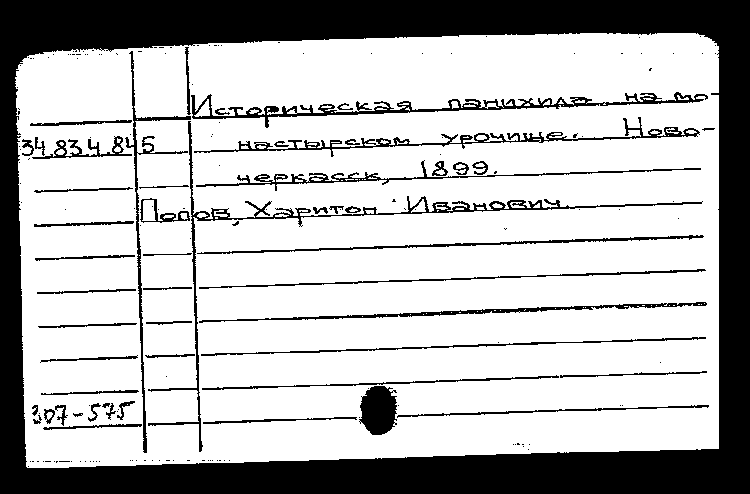 Историческая панихида на мо-
34.834.845 настырском урочище. Ново-
черкасск, 1899.
Попов, Харитон Иванович.
307-575